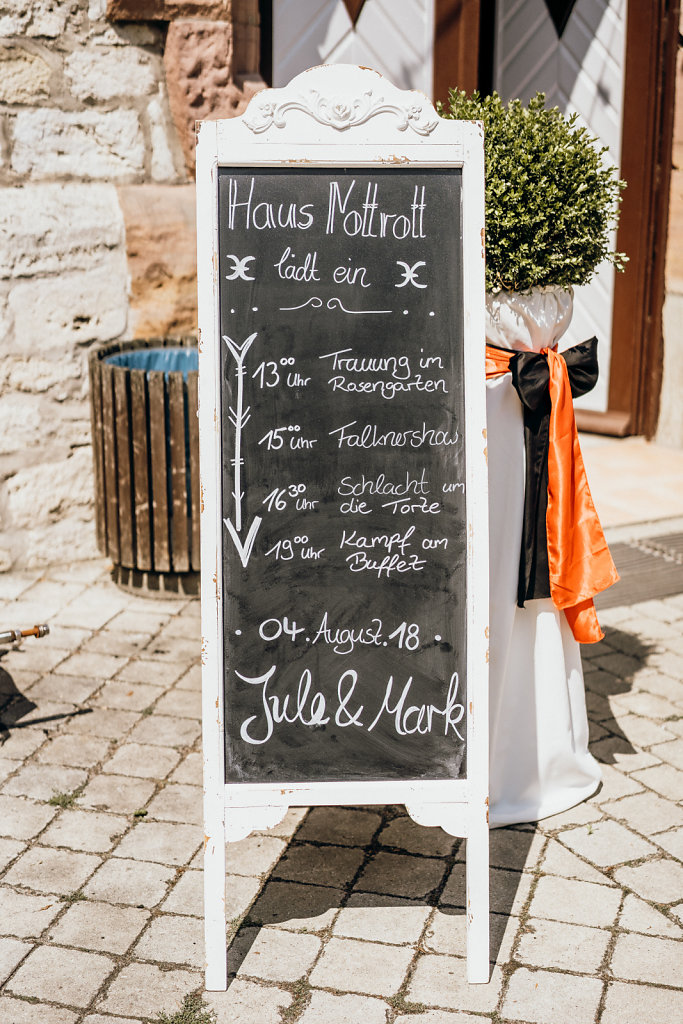 Haus Nottrott
lädt ein
13⁰⁰ Uhr Trauung im
Rosengarten
15⁰⁰ Uhr Falknershow
16³⁰ Uhr Schlacht um
die Torte
19⁰⁰ Uhr Kampf am
Buffet
04. August. 18
Jule & Mark